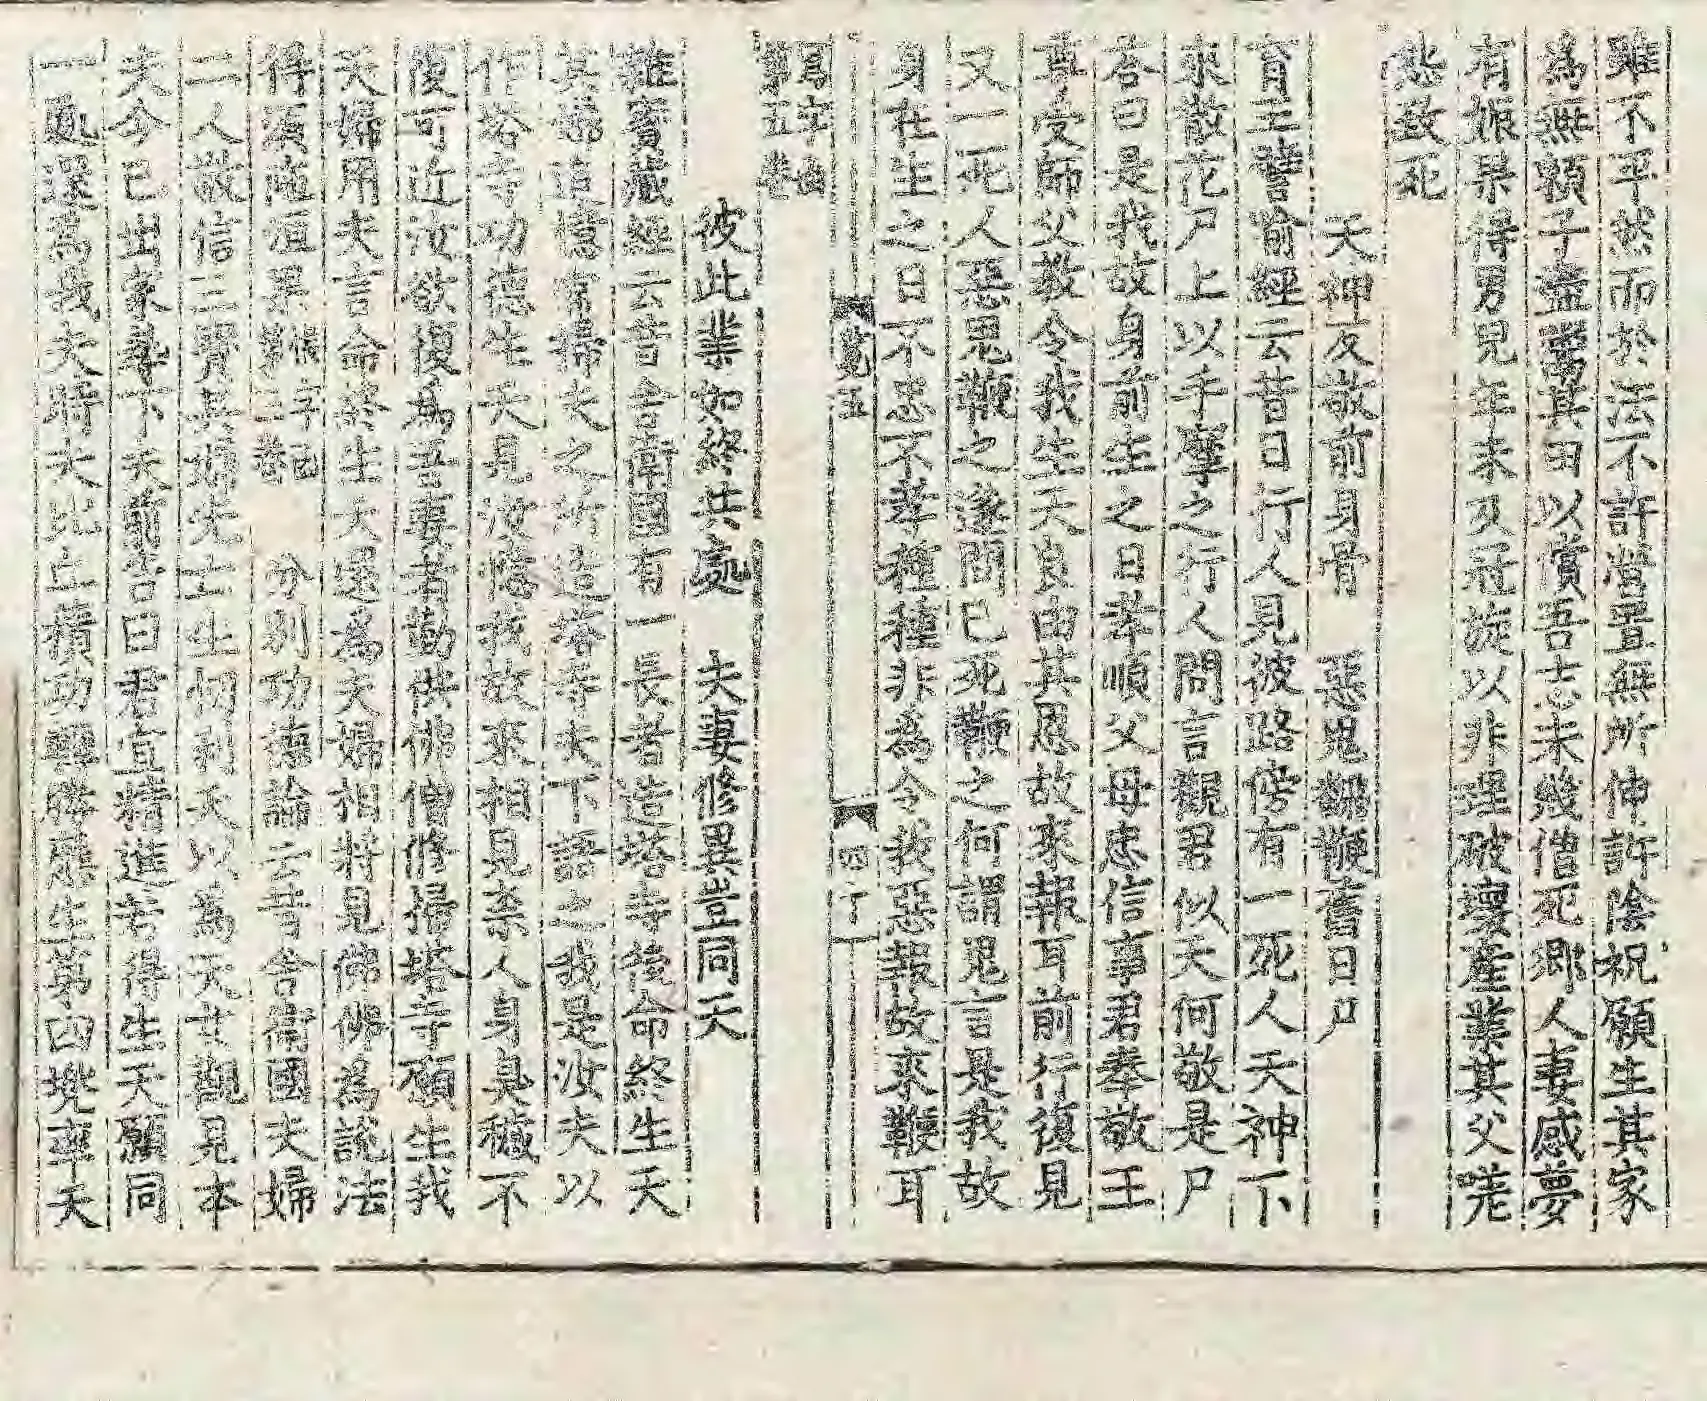 雖不平然而於法不許當置無所伸訴陰祝願生其家
為無賴子盡蕩其田以償吾志未幾僧死鄉人妻感夢
有娠果得男兒年未及冠旋以非理破壞產業其父嗟
悲致死
天神反敬前身骨　惡鬼翻鞭舊日尸
育王譬喻經云昔日行人見彼路傍有一死人天神下
來散花尸上以手摩之行人問言觀君似天何敬是尸
答曰是我故身前生之日孝順父母忠信事君奉敬王
尊受師父教令我生天良由其恩故來報耳前行復見
又一死人惡思鞭之遂問已死鞭之何謂鬼言是我故
身在生之日不忠不孝種種非為令我惡報故來鞭耳
第五卷
彼此業如終共處　夫妻修異豈同天
雜寶藏經云昔舍衛國有一長者造塔寺後命終生天
其婦追憶常掃夫之所造塔寺夫下語之我是汝夫以
作塔寺功德生天見汝憶我故來相見柰人身臭穢不
復可近汝欲復為吾妻者勤供佛僧修掃塔寺願生我
天婦用夫言命終生天還為夫婦相將見佛佛為說法
得須陁洹果 分別功德論云昔舍衛國夫婦
二人敬信三寶其婦先亡生忉利天以為天女觀見本
夫今已出家尋下夫前告曰君宜精進若得生天願同
一處還為我夫時夫比丘積功轉勝應生第四兜率天